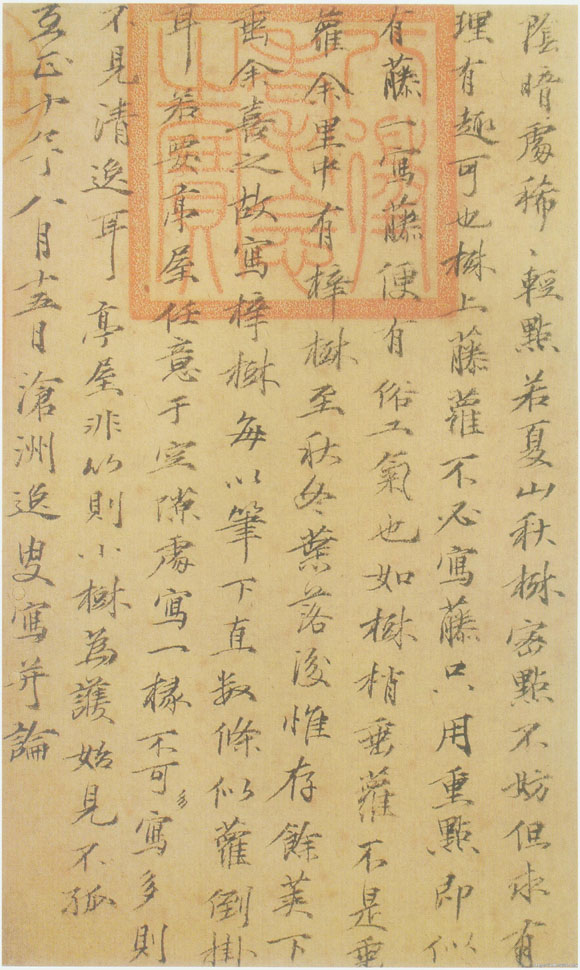 陰暗處稀、輕點若夏山秋樹密點不妨但求有
理有趣可也樹上藤蘿不必寫藤只用重點即似
有藤一寫藤便有俗工氣也如樹梢垂蘿不是垂
蘿余里中有梓樹至秋冬葉落後惟存餘莢下
垂余喜之故寫梓樹每以筆下直數條似蘿倒掛
耳若要亭屋任意于空隙處寫一椽不可多寫多則
不見清逸耳亭屋非以則小樹為護始見不孤
至正十年八月十五日滄洲逸叟寫并論